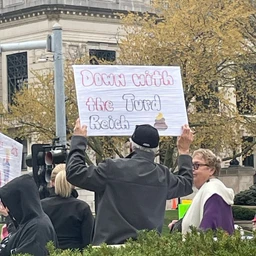 Down with
the Turd
Reich